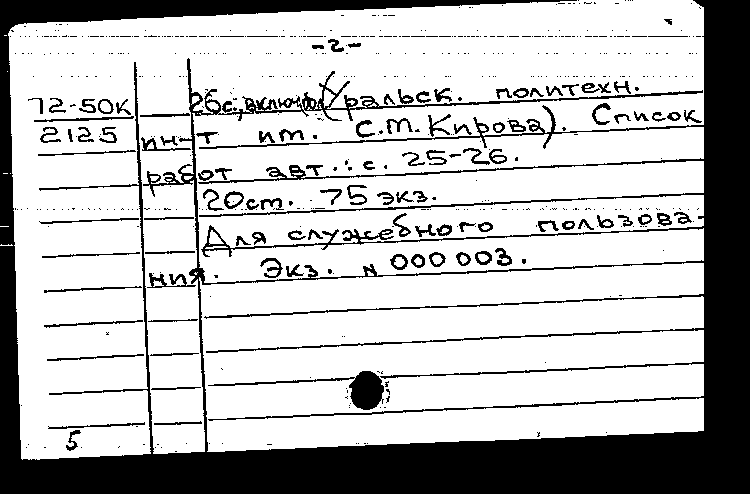 -2-
72-50К 26с., включ. обл. (Уральск. политехн.
2125 ин-т им. С.М. Кирова). Список
работ авт.: с. 25-26.
20ст. 75 экз.
Для служебного пользова-
ния. Экз. N 000 003.
5